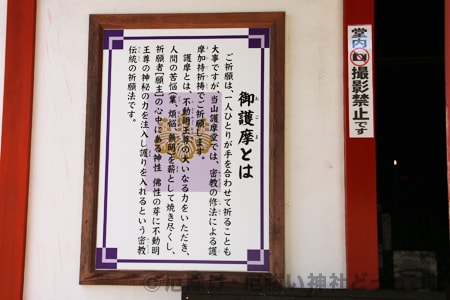 御護摩とは
ご祈願は、一人ひとりが手を合わせて祈ることも
大事ですが、当山護摩堂では、密教の修法による護
摩加持祈祷でご祈願します。
護摩とは、不動明王尊の大いなる力をいただき、
人間の苦悩(業、煩悩、無明)を薪として焼き尽くし、
祈願者[願主]の心中にある神性 佛性の芽に不動明
王尊の神秘の力を注入し護りを入れるという密教
伝統の祈願法です。
堂内撮影禁止です